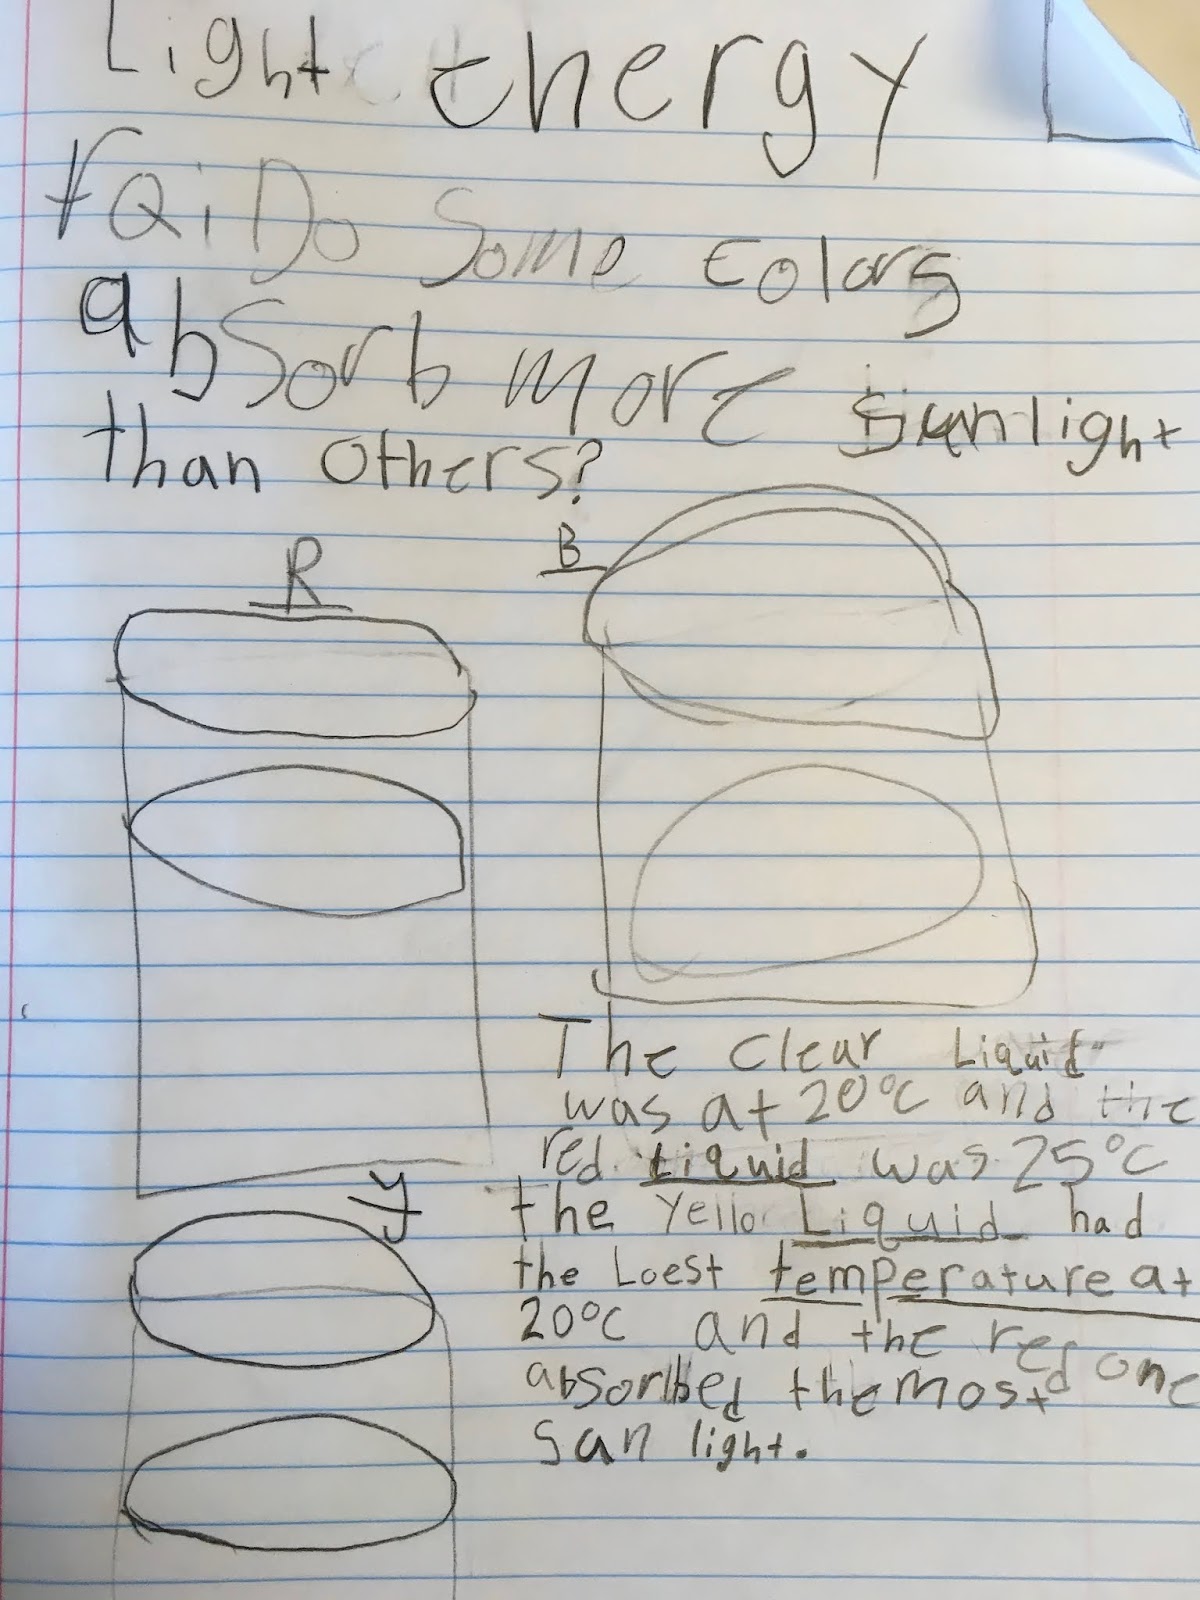 Light energy
FQ: Do Some colors
absorb more sunlight
than others?
R
B
The clear Liquid
was at 20°C and the
red Liquid was 25°C
y
the Yello Liquid had
the Loest temperature at
20°C and the red one
absorbed the most
san light.